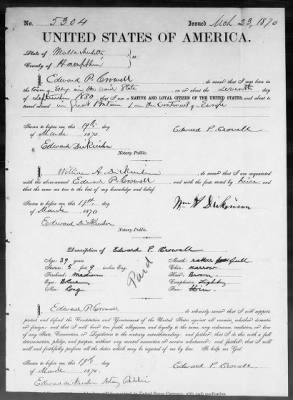 No. 5304 Issued Mch 23, 1870
UNITED STATES OF AMERICA.
State of Massachusetts
County of Hampshire
I Edward P. Crowell, do swear that I was born in the
in the said State on or about the Seventh day
of September 1830; that I am a NATIVE AND LOYAL CITIZEN OF THE UNITED STATES, and about to
travel in Great Britain & on the Continent of Europe
Sworn to before me this 19th day
of March 1870
Edward P. Crowell
Edward Dickinson
Notary Public.
I William A. Dickinson, do swear that I am acquainted
with the above-named Edward P. Crowell and with the facts stated by him, and
that the same are true to the best of my knowledge and belief.
Sworn to before me this 19th day
of March 1870
Wm A Dickinson
Edward Dickinson
Notary Public.
Description of Edward P. Crowell
Age: 39 years
Mouth: rather full
Stature: 5 feet 9 inches Eng.
Chin: narrow
Forehead: Medium
Hair: Brown
Eyes:
Complexion:
Nose:
Face: thin
Paid
I Edward P. Crowell do solemnly swear that I will support,
protect and defend the Constitution and Government of the United States against all enemies, whether domestic
or foreign; and that I will bear true faith, allegiance and loyalty to the same, any ordinance, resolution, or law
of any State, Convention, or Legislature to the contrary notwithstanding; and further, that I do this with a full
determination, pledge, and purpose, without any mental reservation or evasion whatsoever; and further, that I will
well and faithfully perform all the duties which may be required of me by law. So help me God.
Sworn to before me this 19th day
of March 1870
Edward P. Crowell
Edward Dickinson Notary Public